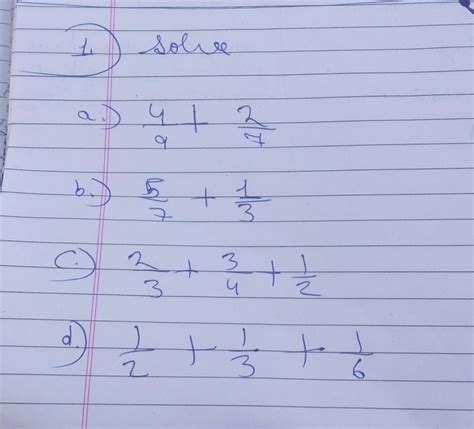 1.) Solve
a.) 4/9 + 2/7
b.) 5/7 + 1/3
c.) 2/3 + 3/4 + 1/2
d.) 1/2 + 1/3 + 1/6